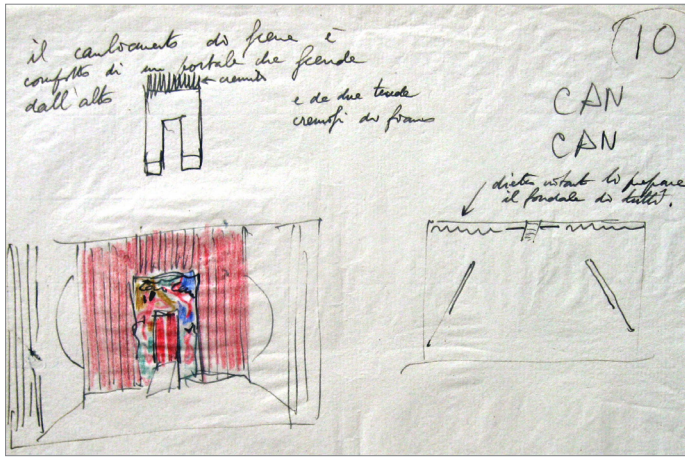 il cambiamento di scene è
composto di un portale che scende
dall'alto
← cremisi
e da due tende
cremisi di fianco
10
CAN
CAN
dietro intanto si prepara
il fondale di tutti.